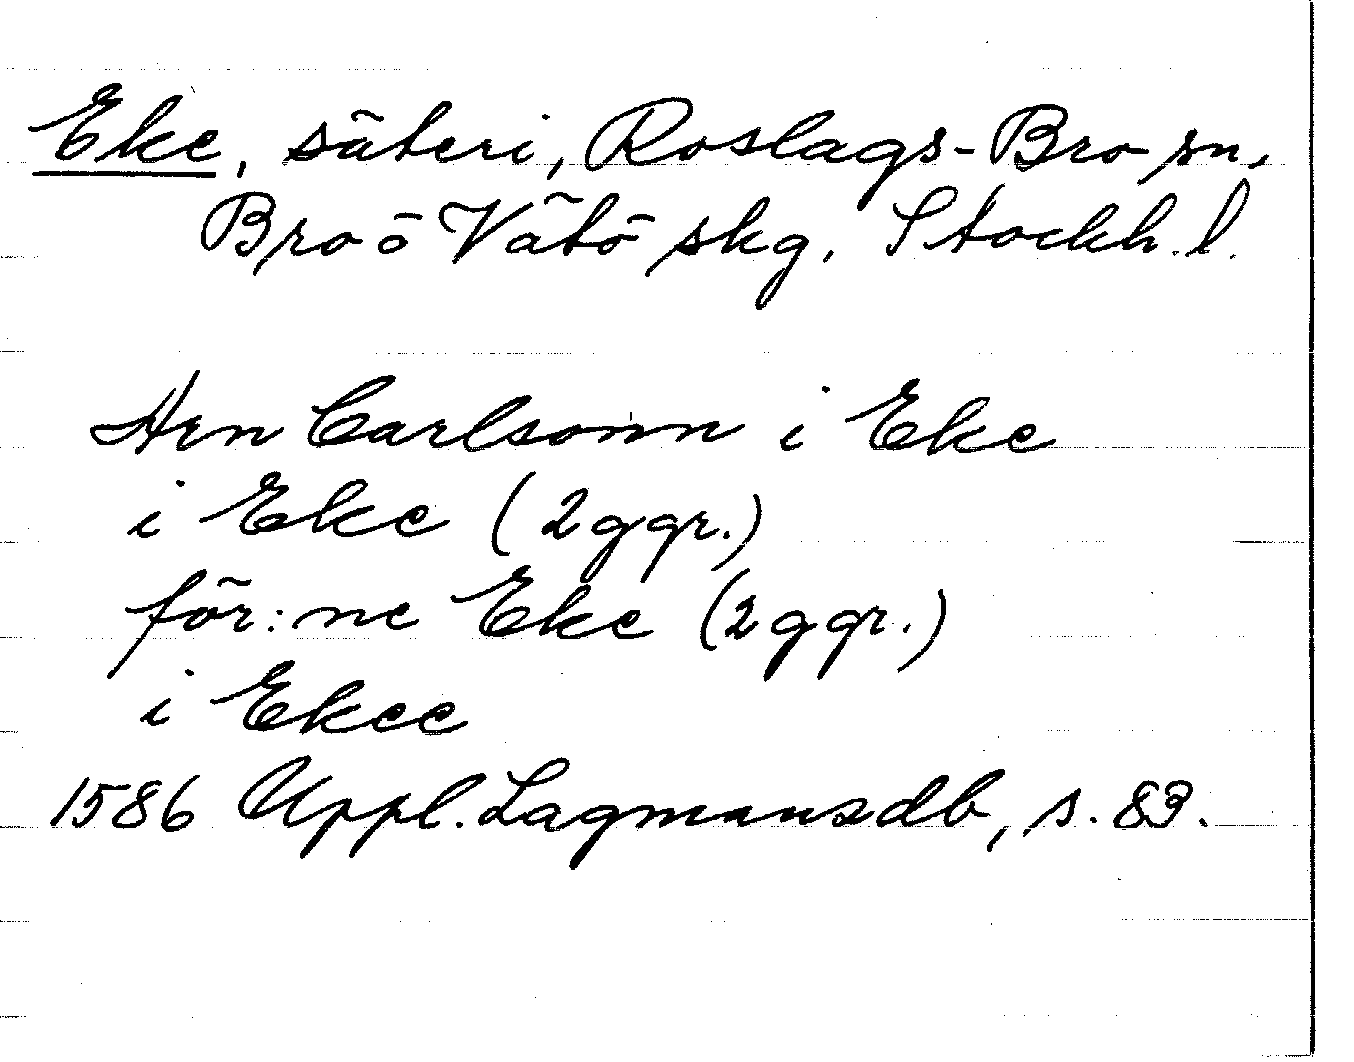 Eke, säteri, Roslags-Bro sn,
Bro ö Vätö skg, Stockh. l.
Hen Carlsonn i Eke
i Eke (2 ggr.)
för:ne Eke (2 ggr.)
i Ekee
1586 Uppl. Lagmansdb, s. 83.